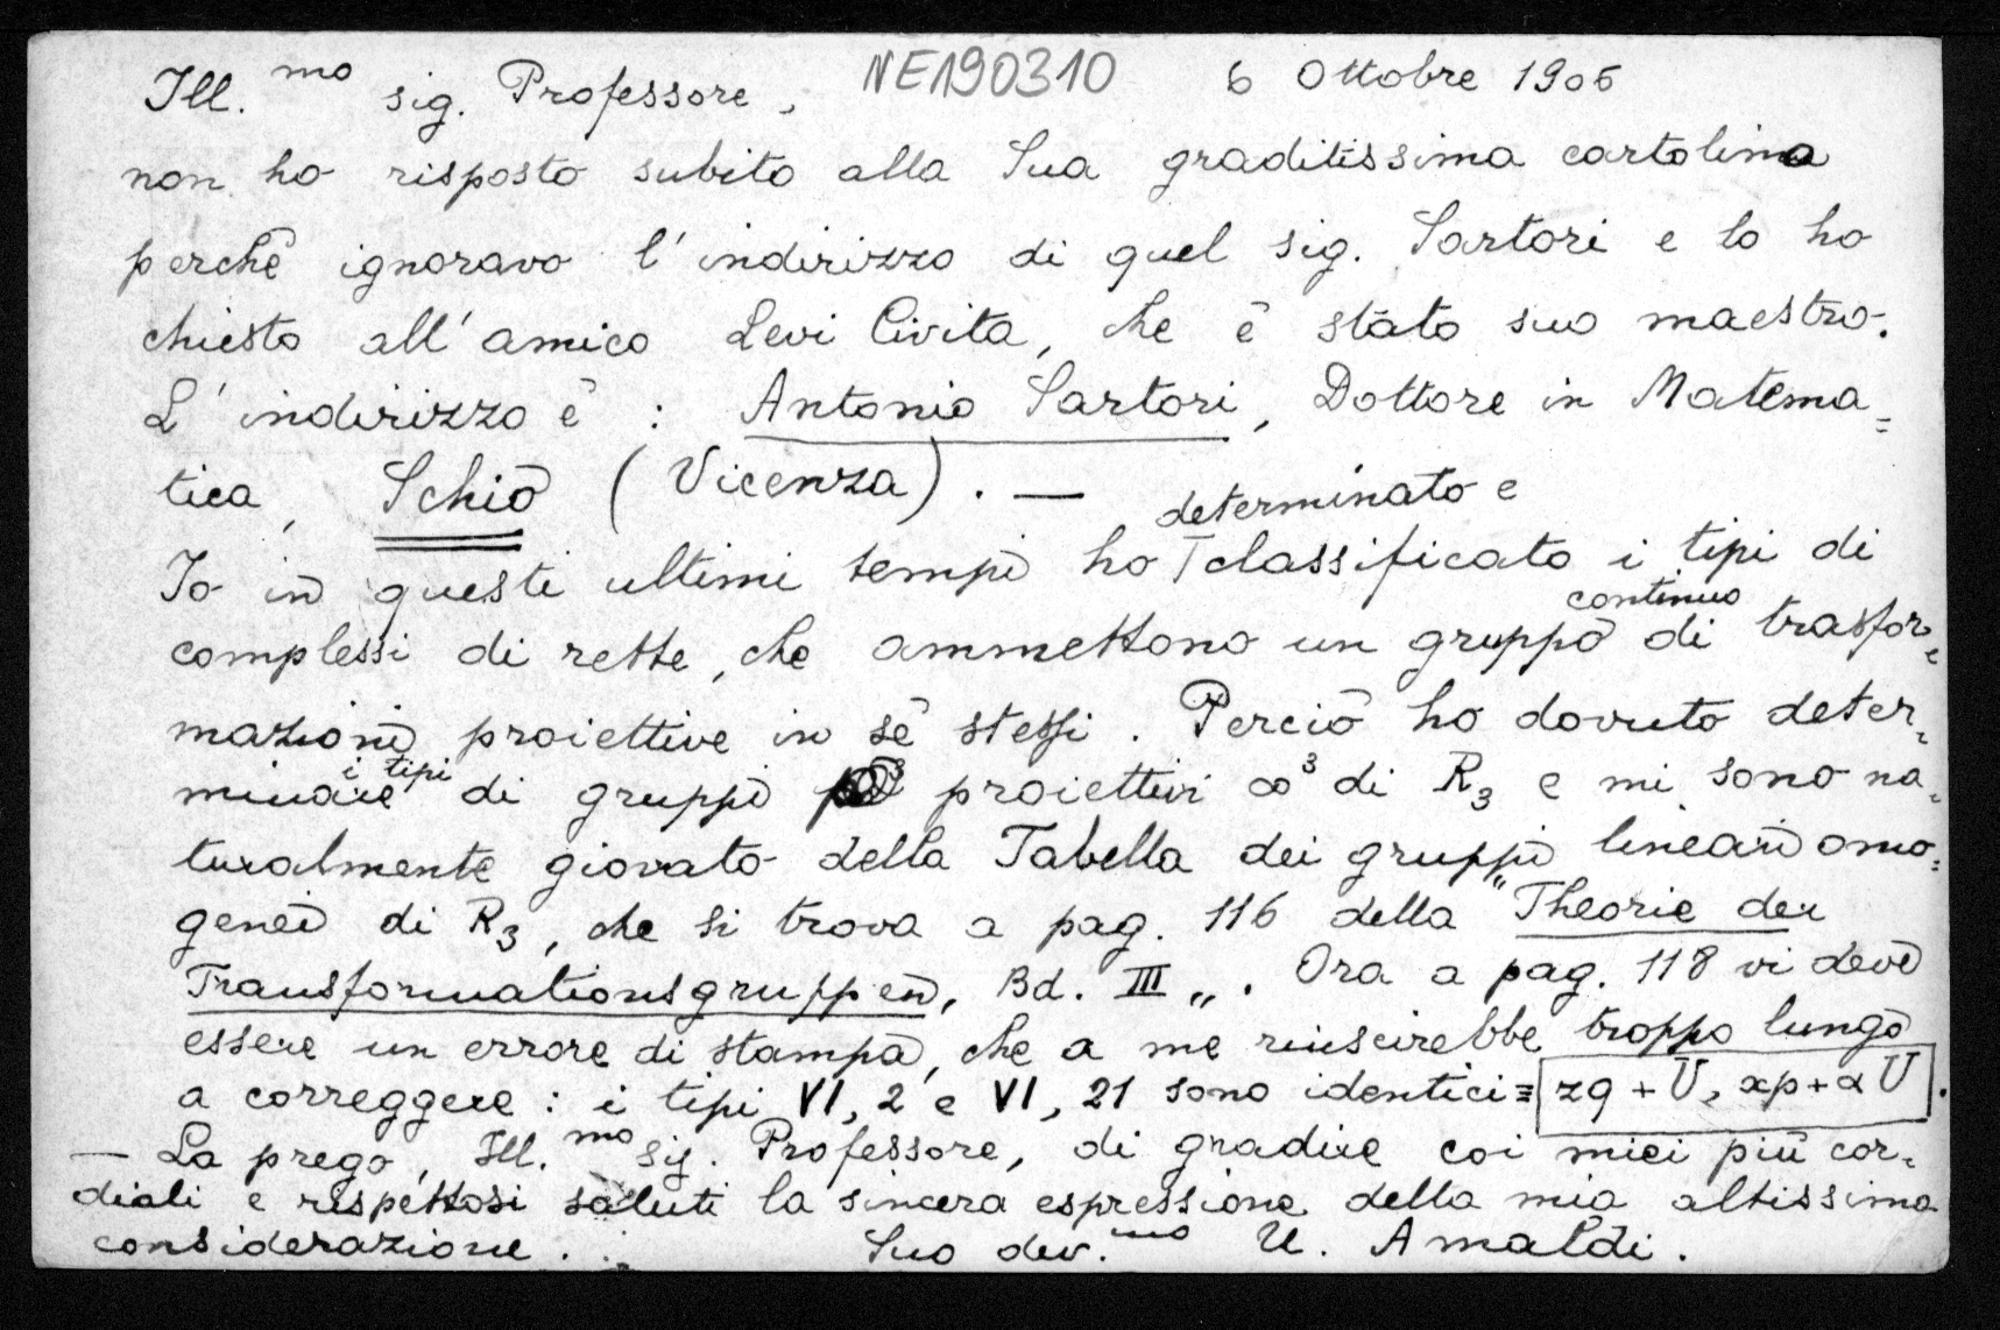 NE190310
Ill.mo sig. Professore, 6 Ottobre 1906
non ho risposto subito alla Sua graditissima cartolina
perchè ignoravo l'indirizzo di quel sig. Sartori e lo ho
chiesto all'amico Levi Civita, che è stato suo maestro.
L'indirizzo è : Antonio Sartori, Dottore in Matema=
tica, Schio (Vicenza). —
determinato e
Io in questi ultimi tempi ho classificato i tipi di
continuo
complessi di rette, che ammettono un gruppo di trasfor=
mazioni proiettive in sè stessi. Perciò ho dovuto deter=
i tipi
minare di gruppi proiettivi ∞³ di R₃ e mi sono na=
turalmente giovato della Tabella dei gruppi lineari omo=
genei di R₃, che si trova a pag. 116 della "Theorie der
Transformationsgruppen, Bd. III„. Ora a pag. 118 vi deve
essere un errore di stampa, che a me riuscirebbe troppo lungo
a correggere : i tipi VI, 2 e VI, 21 sono identici ≡ zq + U, xp + αU.
— La prego, Ill.mo sig. Professore, di gradire coi miei più cor=
diali e rispettosi saluti la sincera espressione della mia altissima
considerazione. Suo dev.mo U. Amaldi.